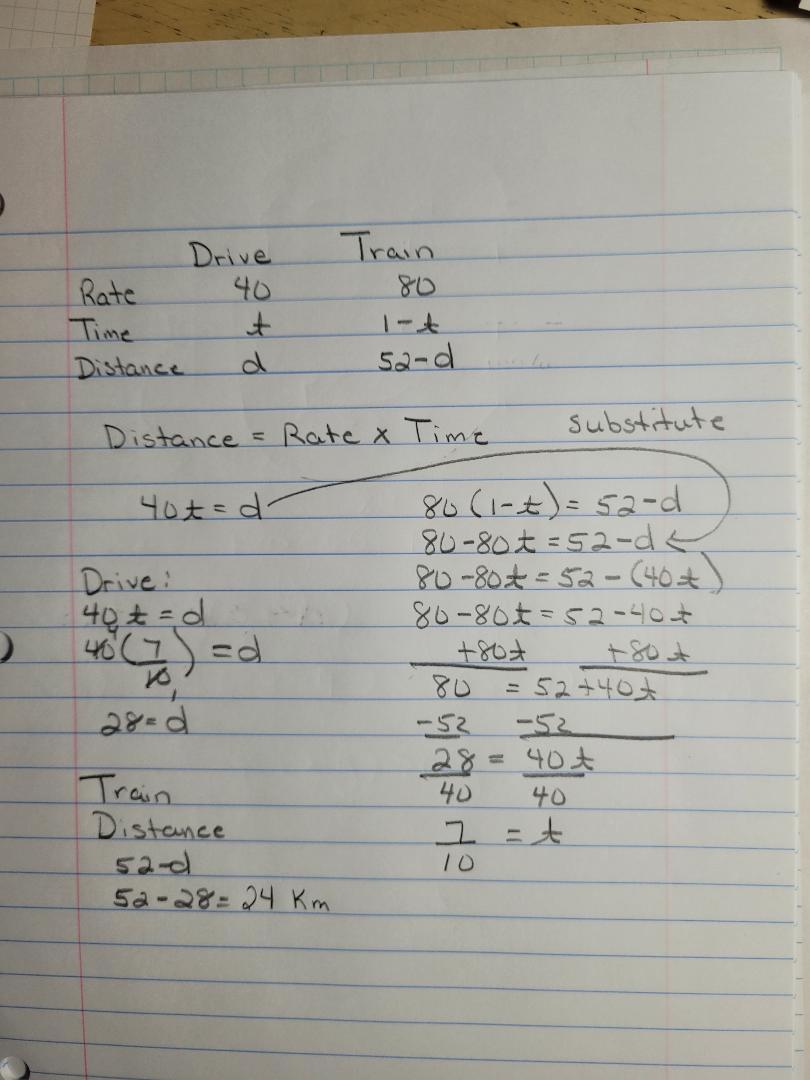 Drive Train
Rate 40 80
Time t 1-t
Distance d 52-d
Distance = Rate x Time
substitute
40t = d
80(1-t) = 52-d
80-80t = 52-d
80-80t = 52-(40t)
80-80t = 52-40t
+80t +80t
80 = 52+40t
-52 -52
28 = 40t
40 40
7 = t
10
Drive:
40t = d
40(7/10) = d
4
1
28 = d
Train
Distance
52-d
52-28 = 24 Km